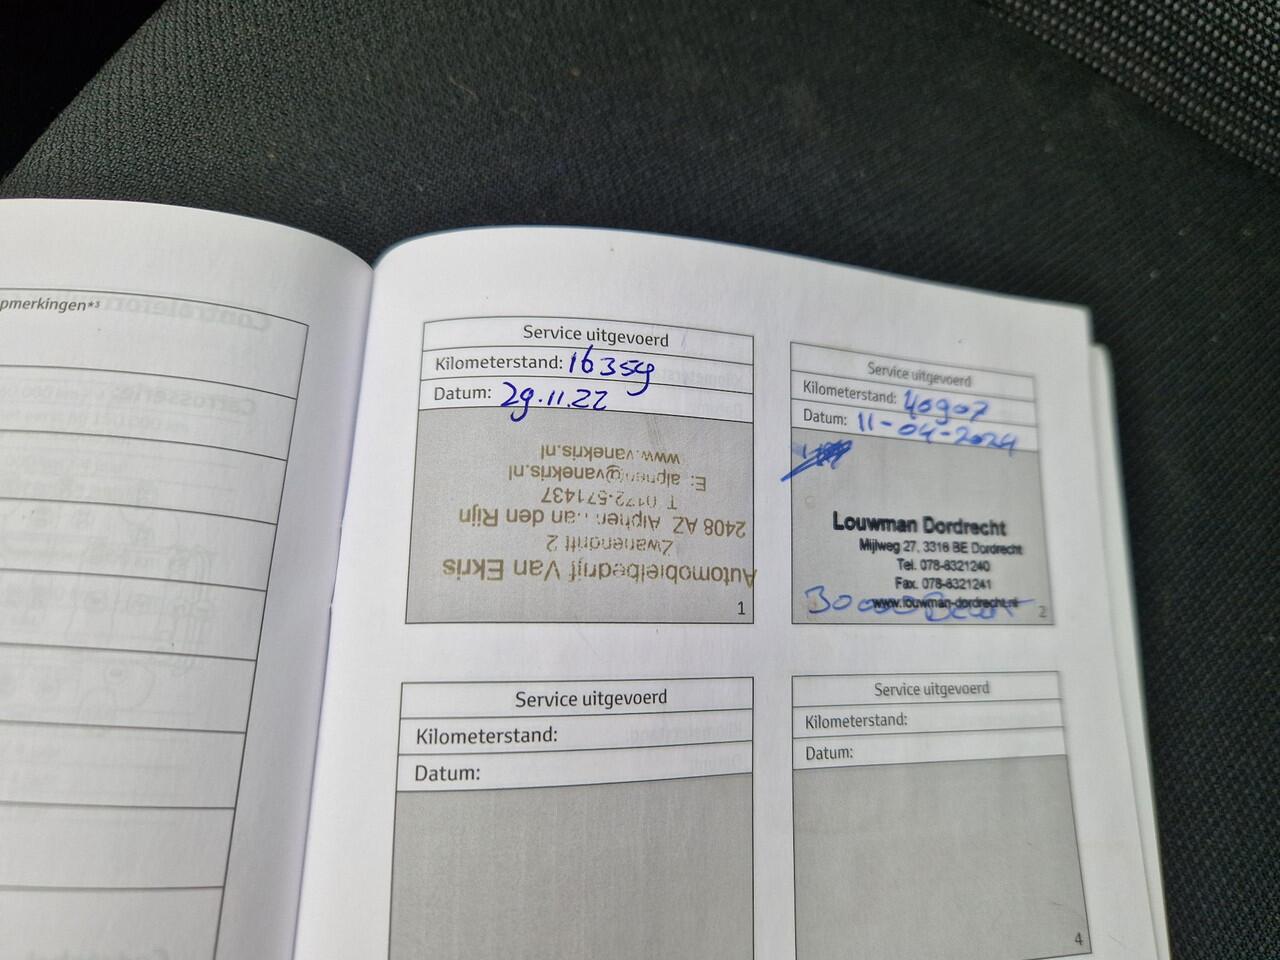 pmerkingen*³
Service uitgevoerd
Kilometerstand: 16359
Datum: 29.11.22
Automobielbedrijf Van Ekris
Zwanendrift 2
2408 AZ Alphen an den Rijn
T 0172-571437
E: alphen@vanekris.nl
www.vanekris.nl
1
Service uitgevoerd
Kilometerstand: 40907
Datum: 11-04-2024
Louwman Dordrecht
Mijlweg 27, 3316 BE Dordrecht
Tel. 078-6321240
Fax. 078-6321241
www.louwman-dordrecht.nl
30000 Beurt
2
Service uitgevoerd
Kilometerstand:
Datum:
Service uitgevoerd
Kilometerstand:
Datum:
4